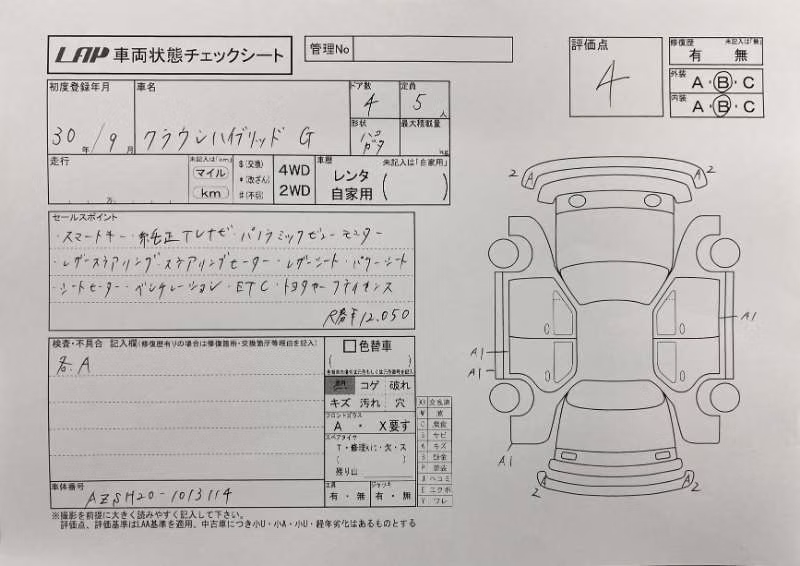 LAA 車両状態チェックシート
管理No
評価点
4
修復歴 未記入は「無」
有 無
外装 A・B・C
内装 A・B・C
初度登録年月
30年/9月
車名
クラウンハイブリッド G
ドア数
4
定員
5人
形状
ハコ
最大積載量
kg
走行
万
未記入は「km」
マイル
km
$(交換)
*(改ざん)
#(不明)
4WD
2WD
車歴 未記入は「自家用」
レンタ
自家用
セールスポイント
・スマートキー・純正TVナビ・パノラミックビューモニター
・レザーステアリング・ステアリングヒーター・レザーシート・パワーシート
・シートヒーター・ベンチレーション・ETC・トヨタセーフティセンス
R券¥12,050
検査・不具合 記入欄(修復歴有りの場合は修復箇所・交換箇所等理由を記入)
各A
色替車
コゲ 破れ
キズ 汚れ 穴
フロントガラス
A ・ X要す
スペアタイヤ
T・修理kit・欠・ス
残り山
工具
有・無
ジャッキ
有・無
車体番号
AZSH20-1013114
※撮影を前提に大きく読みやすく記入して下さい。
評価点、評価基準はLAA基準を適用、中古車につき小U・小A・小U・経年劣化はあるものとする
A2
A2
A1
A1
A1
A1
A2
A2